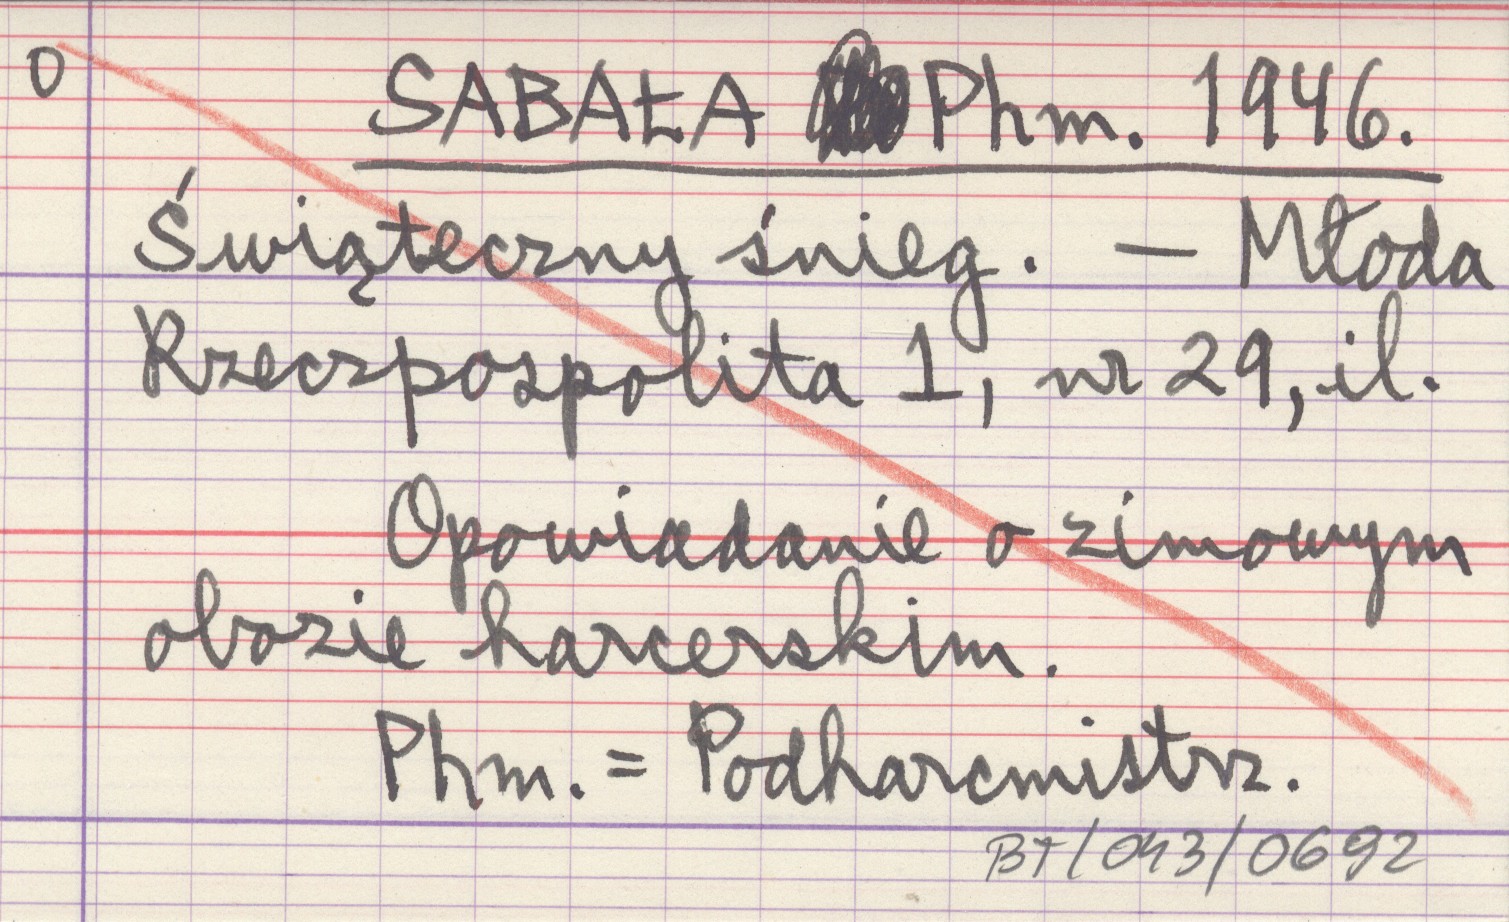 O SABAŁA Phm. 1946.
Świąteczny śnieg. — Młoda
Rzeczpospolita 1, nr 29, il.
Opowiadanie o zimowym
obozie harcerskim.
Phm. = Podharcmistrz.
BT/043/0692